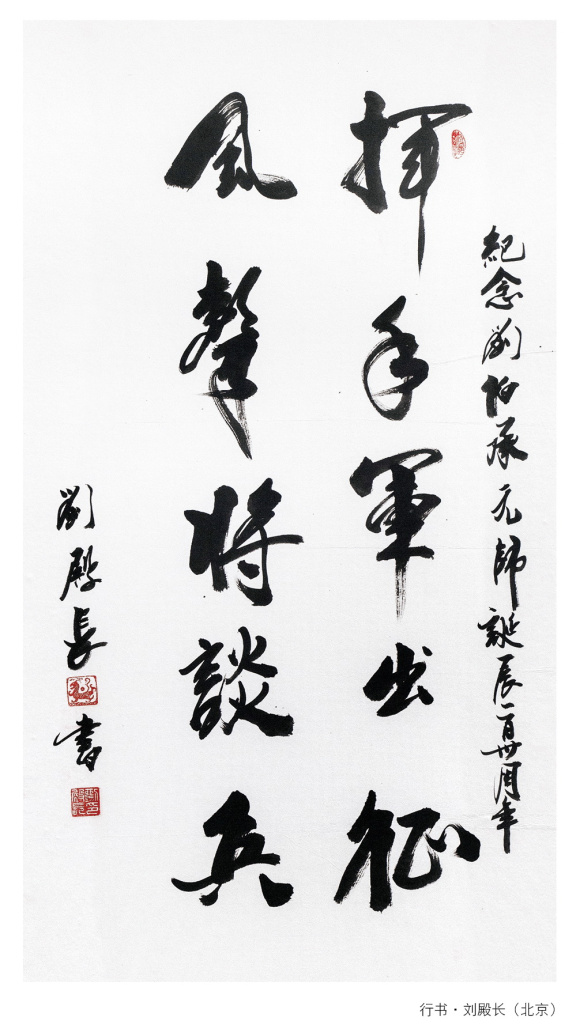 紀念劉伯承元帥誕辰一百卅周年
揮手軍出征
風聲將談兵
劉殿長
書
行书·刘殿长（北京）